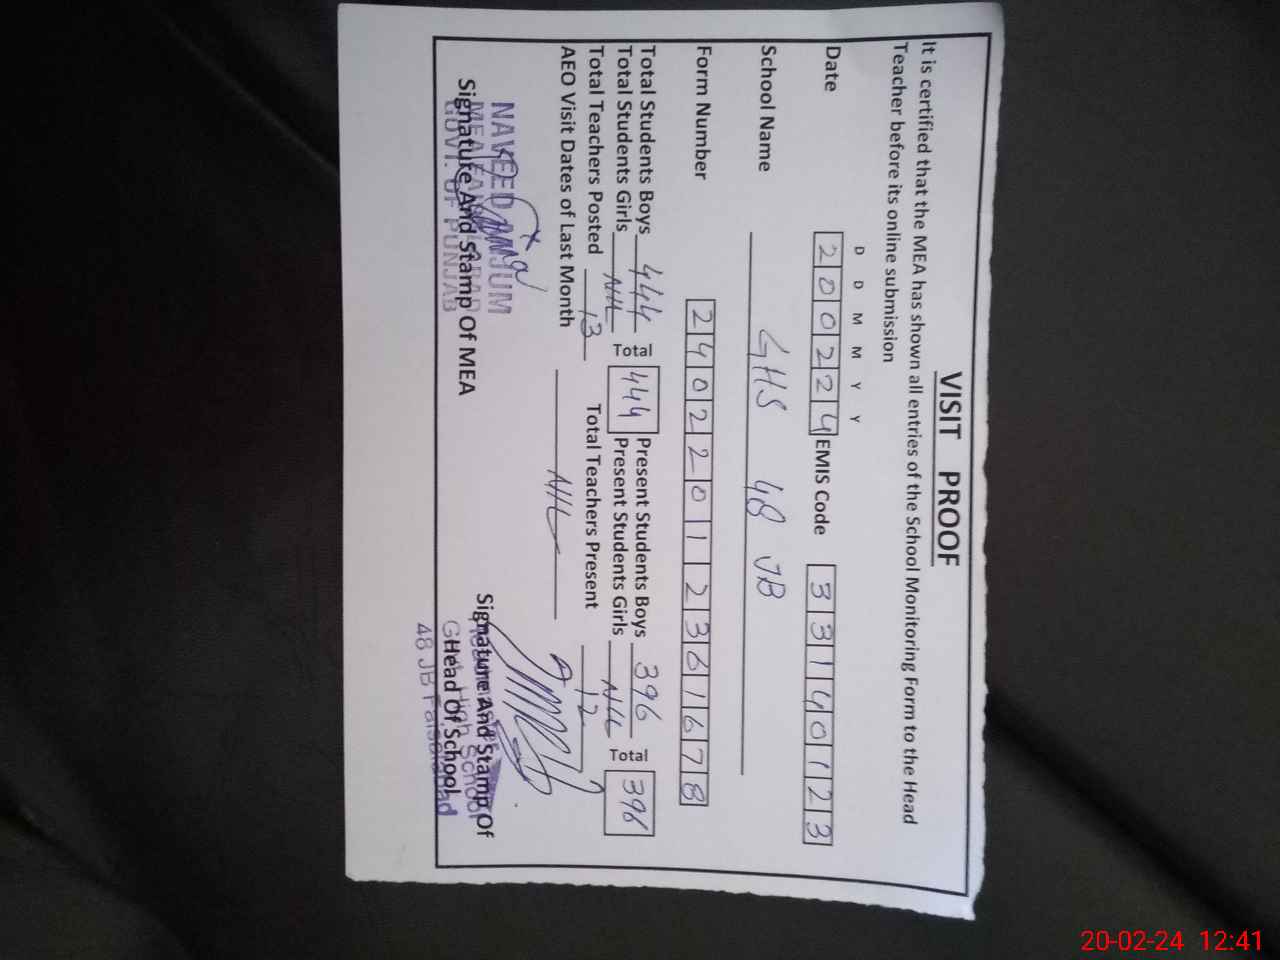 VISIT PROOF
It is certified that the MEA has shown all entries of the School Monitoring Form to the Head
Teacher before its online submission
D D M M Y Y
Date 200224 EMIS Code 33140123
School Name GHS 48 JB
Form Number 24022012361678
Total Students Boys 444 Total 444 Present Students Boys 396 Total 396
Total Students Girls NIL Present Students Girls NIL
Total Teachers Posted 13 Total Teachers Present 12
AEO Visit Dates of Last Month NIL
NAVEED ANJUM
MEA FAISALABAD
GOVT. OF PUNJAB
Signature And Stamp Of MEA
Signature And Stamp Of
Head Of School
High School
48 JB Faisalabad
20-02-24 12:41